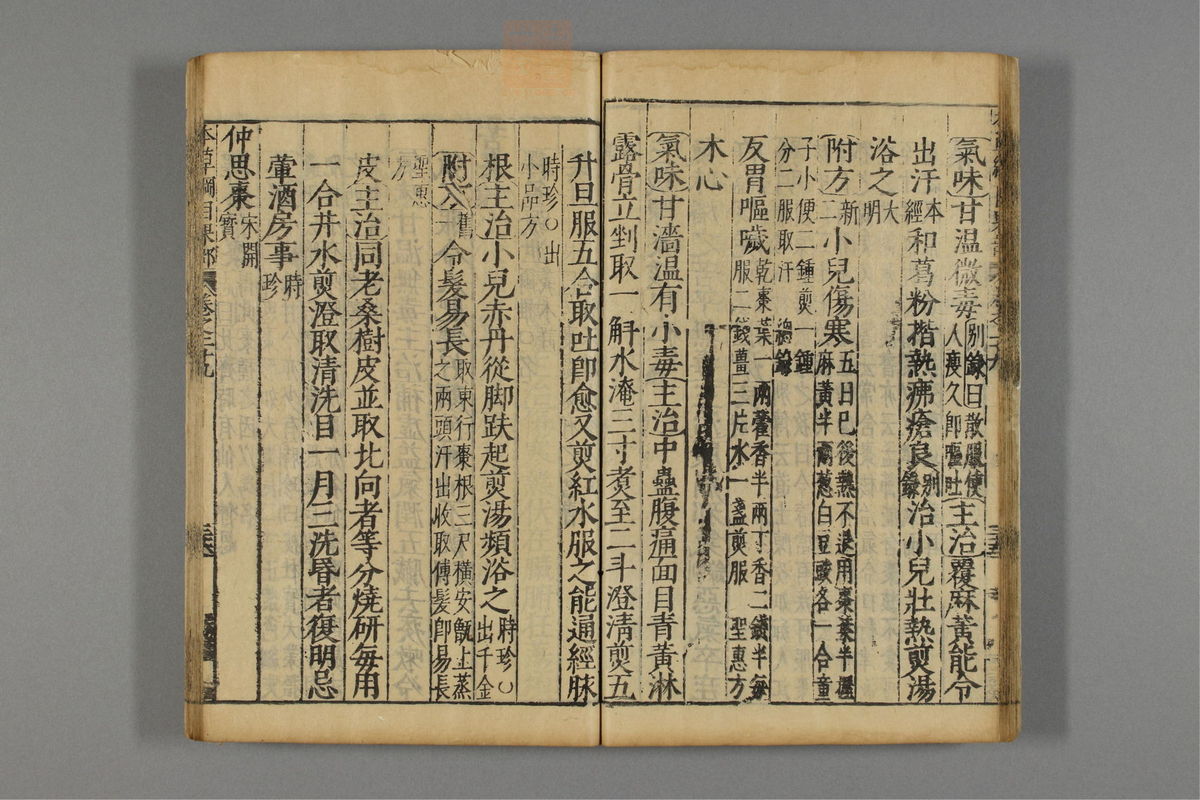 氣味甘温微毒別錄曰散服使
人瘦久即嘔吐主治覆麻黃能令
出汗本
經和葛粉揩熱疿瘡良別
錄治小兒壯熱煎湯
浴之大
明
附方新
二小兒傷寒五日已後熱不退用棗葉半握
麻黃半兩葱白豆豉各一合童
子小便二鍾煎一鍾
分二服取汗 總錄
反胃嘔噦乾棗葉一兩藿香半兩丁香二錢半每
服二錢薑三片水一盞煎服 聖惠方
木心
氣味甘濇温有小毒主治中蠱腹痛面目青黃淋
露骨立剉取一斛水淹三寸煮至二斗澄清煎五
升旦服五合取吐即愈又煎紅水服之能通經脉
時珍○出
小品方
根主治小兒赤丹從脚趺起煎湯頻浴之時珍○
出千金
附方舊
一令髮易長取東行棗根三尺横安甑上蒸
之兩頭汗出收取傅髮即易長
聖惠
方
皮主治同老桑樹皮並取北向者等分燒研每用
一合井水煎澄取清洗目一月三洗昏者復明忌
葷酒房事時
珍
仲思棗宋開
寶
本草綱目果部 卷之二十九